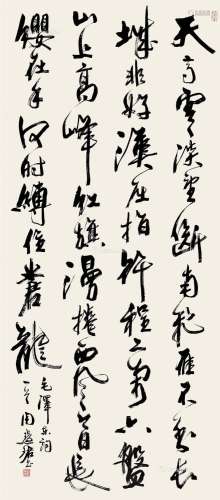 天高雲淡望斷南飛雁不到長
城非好漢屈指行程二萬六盤
山上高峰紅旗漫捲西風今日長
纓在手何時縛住蒼龍
毛澤東詞
周慧珺書